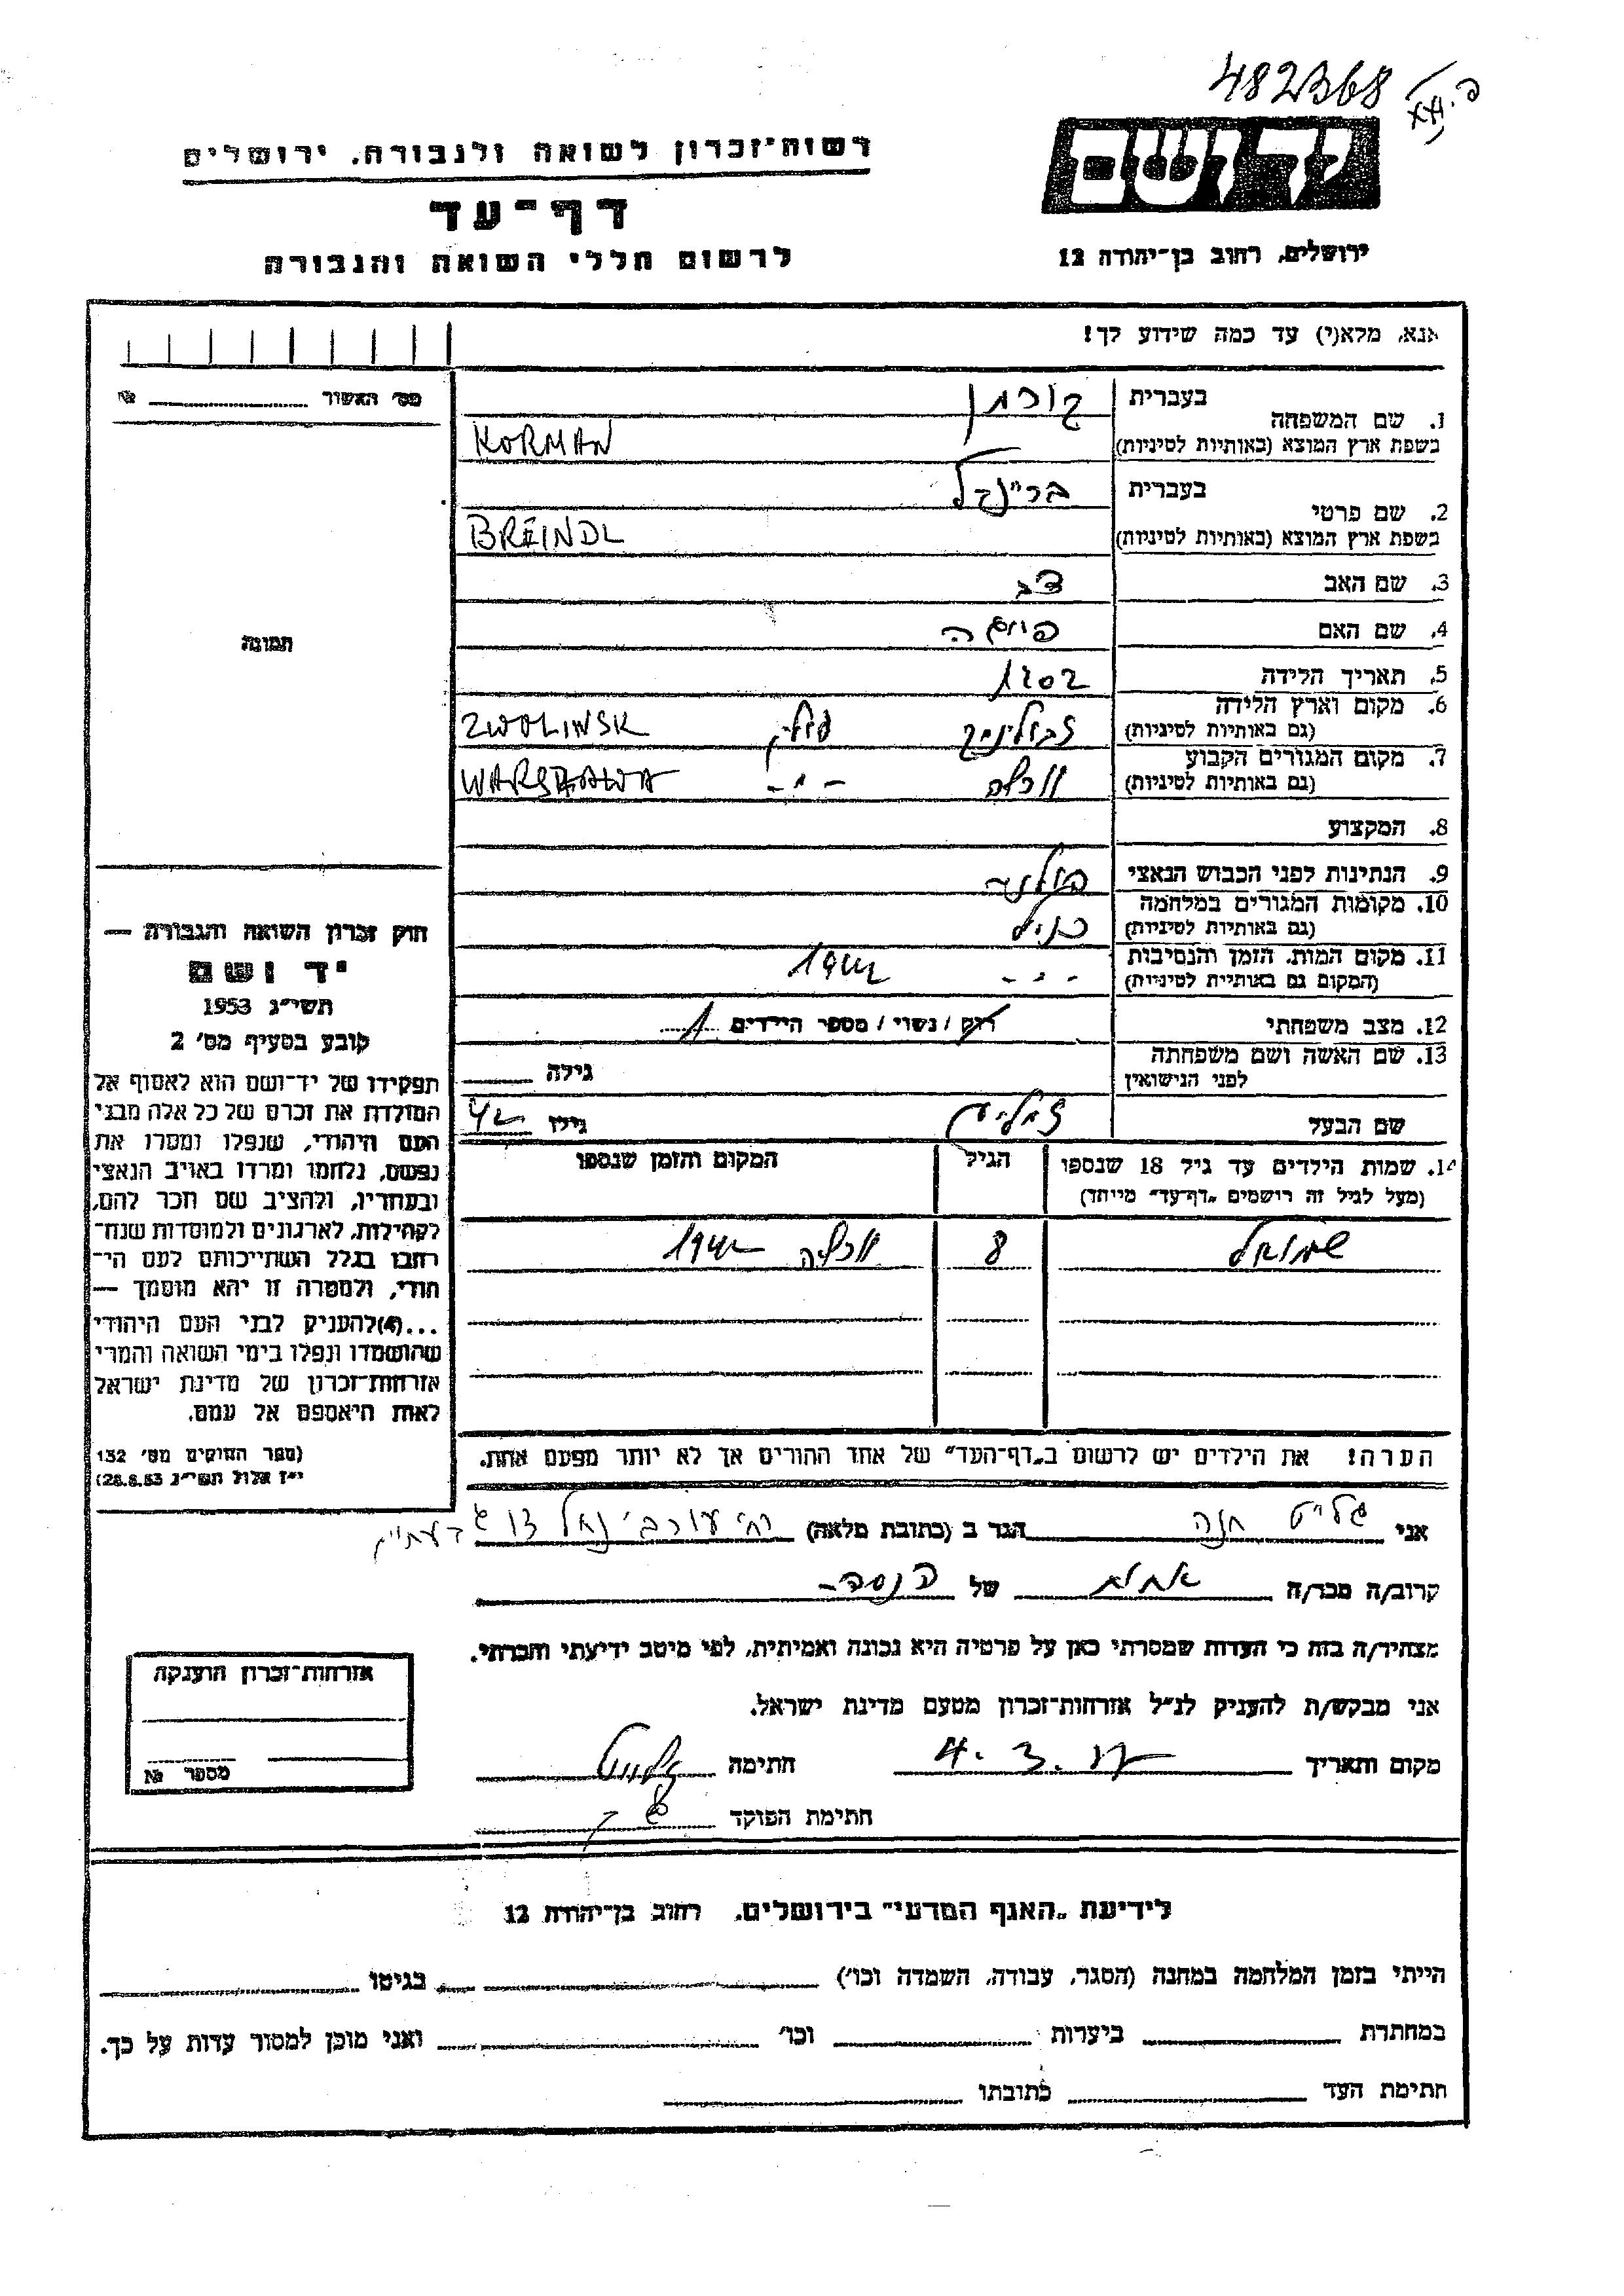 482368
רשות־זכרון לשואה ולגבורה, ירושלים
יד ושם
דף־עד
לרשום חללי השואה והגבורה
ירושלים, רחוב בן־יהודה 12
אנא, מלא(י) עד כמה שידוע לך!
מס׳ האשור № 
1. שם המשפחה
בעברית קורמן
בשפת ארץ המוצא (באותיות לטיניות) KORMAN
2. שם פרטי
בעברית בריינדל
בשפת ארץ המוצא (באותיות לטיניות) BREINDL
3. שם האב דב
4. שם האם
תמונה
5. תאריך הלידה
6. מקום וארץ הלידה
(גם באותיות לטיניות) פולין ZWOLINSK
7. מקום המגורים הקבוע
(גם באותיות לטיניות) וורשה -״- WARSZAWA
8. המקצוע
9. הנתינות לפני הכבוש הנאצי פולנית
10. מקומות המגורים במלחמה
(גם באותיות לטיניות) כנ״ל
11. מקום המות, הזמן והנסיבות
(המקום גם באותיות לטיניות) -״- 1942
12. מצב משפחתי רוק / נשוי / מספר הילדים 1
13. שם האשה ושם משפחתה
לפני הנישואין גילה
שם הבעל גילו 42
14. שמות הילדים עד גיל 18 שנספו
(מעל לגיל זה רושמים „דף־עד״ מיוחד)
הגיל
המקום והזמן שנספו
שמואל 8 וורשה 1942
הערה! את הילדים יש לרשום ב„דף־העד״ של אחד ההורים אך לא יותר מפעם אחת.
חוק זכרון השואה והגבורה —
יד ושם
תשי״ג 1953
קובע בסעיף מס׳ 2
תפקידו של יד־ושם הוא לאסוף אל
המולדת את זכרם של כל אלה מבני
העם היהודי, שנפלו ומסרו את
נפשם, נלחמו ומרדו באויב הנאצי
ובעוזריו, ולהציב שם וזכר להם,
לקהילות, לארגונים ולמוסדות שנח־
רבו בגלל השתייכותם לעם הי־
הודי, ולמטרה זו יהא מוסמך —
...(4)להעניק לבני העם היהודי
שהושמדו ונפלו בימי השואה והמרי
אזרחות־זכרון של מדינת ישראל
לאות היאספם אל עמם.
(ספר החוקים מס׳ 132
י״ז אלול תשי״ג 28.8.53)
אני חנה הגר ב (כתובת מלאה)
קרוב/ה מכר/ה אחות של הנספה
מצהיר/ה בזה כי העדות שמסרתי כאן על פרטיה היא נכונה ואמיתית, לפי מיטב ידיעתי והכרתי.
אני מבקש/ת להעניק לנ״ל אזרחות־זכרון מטעם מדינת ישראל.
מקום ותאריך 4. 3. חתימה
חתימת הפוקד
אזרחות־זכרון הוענקה
מספר №
לידיעת „האגף המדעי״ בירושלים, רחוב בן־יהודה 12
הייתי בזמן המלחמה במחנה (הסגר, עבודה, השמדה וכו׳) בגיטו
במחתרת ביערות וכו׳ ואני מוכן למסור עדות על כך.
חתימת העד כתובתו